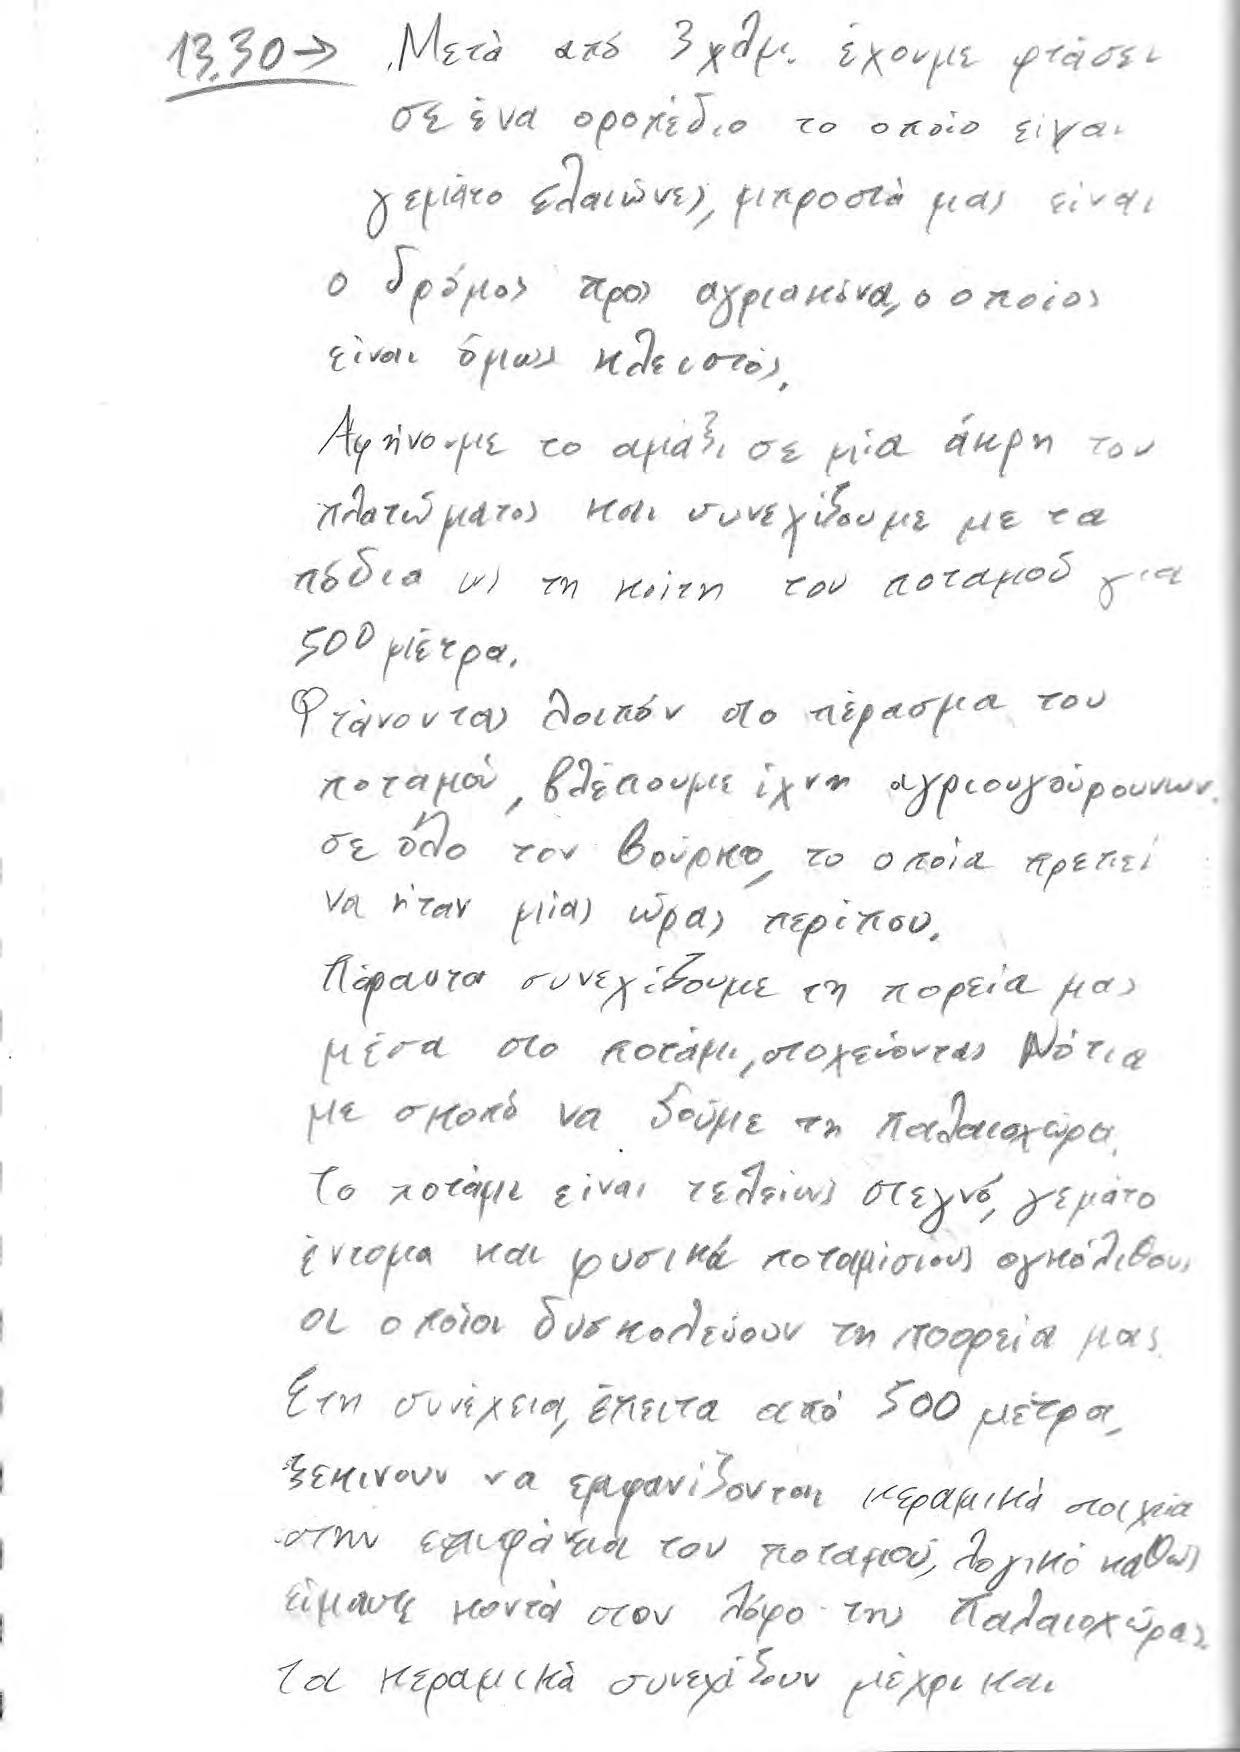 13.30 → Μετά από 3 χλμ. έχουμε φτάσει
σε ένα οροπέδιο το οποίο είναι
γεμάτο ελαιώνες, μπροστά μας είναι
ο δρόμος προς αγριακόνα, ο οποίος
είναι όμως κλειστός.
Αφήνουμε το αμάξι σε μία άκρη του
πλατώματος και συνεχίζουμε με τα
πόδια ως τη κοίτη του ποταμού για
500 μέτρα.
Φτάνοντας λοιπόν στο πέρασμα του
ποταμού, βλέπουμε ίχνη αγριουγούρουνων.
σε όλο τον βούρκο, το οποία πρεπεί
να ήταν μίας ώρας περίπου.
Πάραυτα συνεχίζουμε τη πορεία μας
μέσα στο ποτάμι, στοχεύοντας Νότια
με σκοπό να δούμε τη Παλαιοχώρα.
Το ποτάμι είναι τελείως στεγνό, γεμάτο
έντομα και φυσικά ποταμίσιους ογκόλιθους
οι οποίοι δυσκολεύουν τη ποορεία μας.
Στη συνέχεια, έπειτα από 500 μέτρα,
ξεκινουν να εμφανίζονται κεραμικά στοιχεία
στην επιφάνεια του ποταμού, λογικό καθώς
είμαστε κοντά στον λόφο της Παλαιοχώρας.
Τα κεραμικά συνεχίζουν μέχρι και